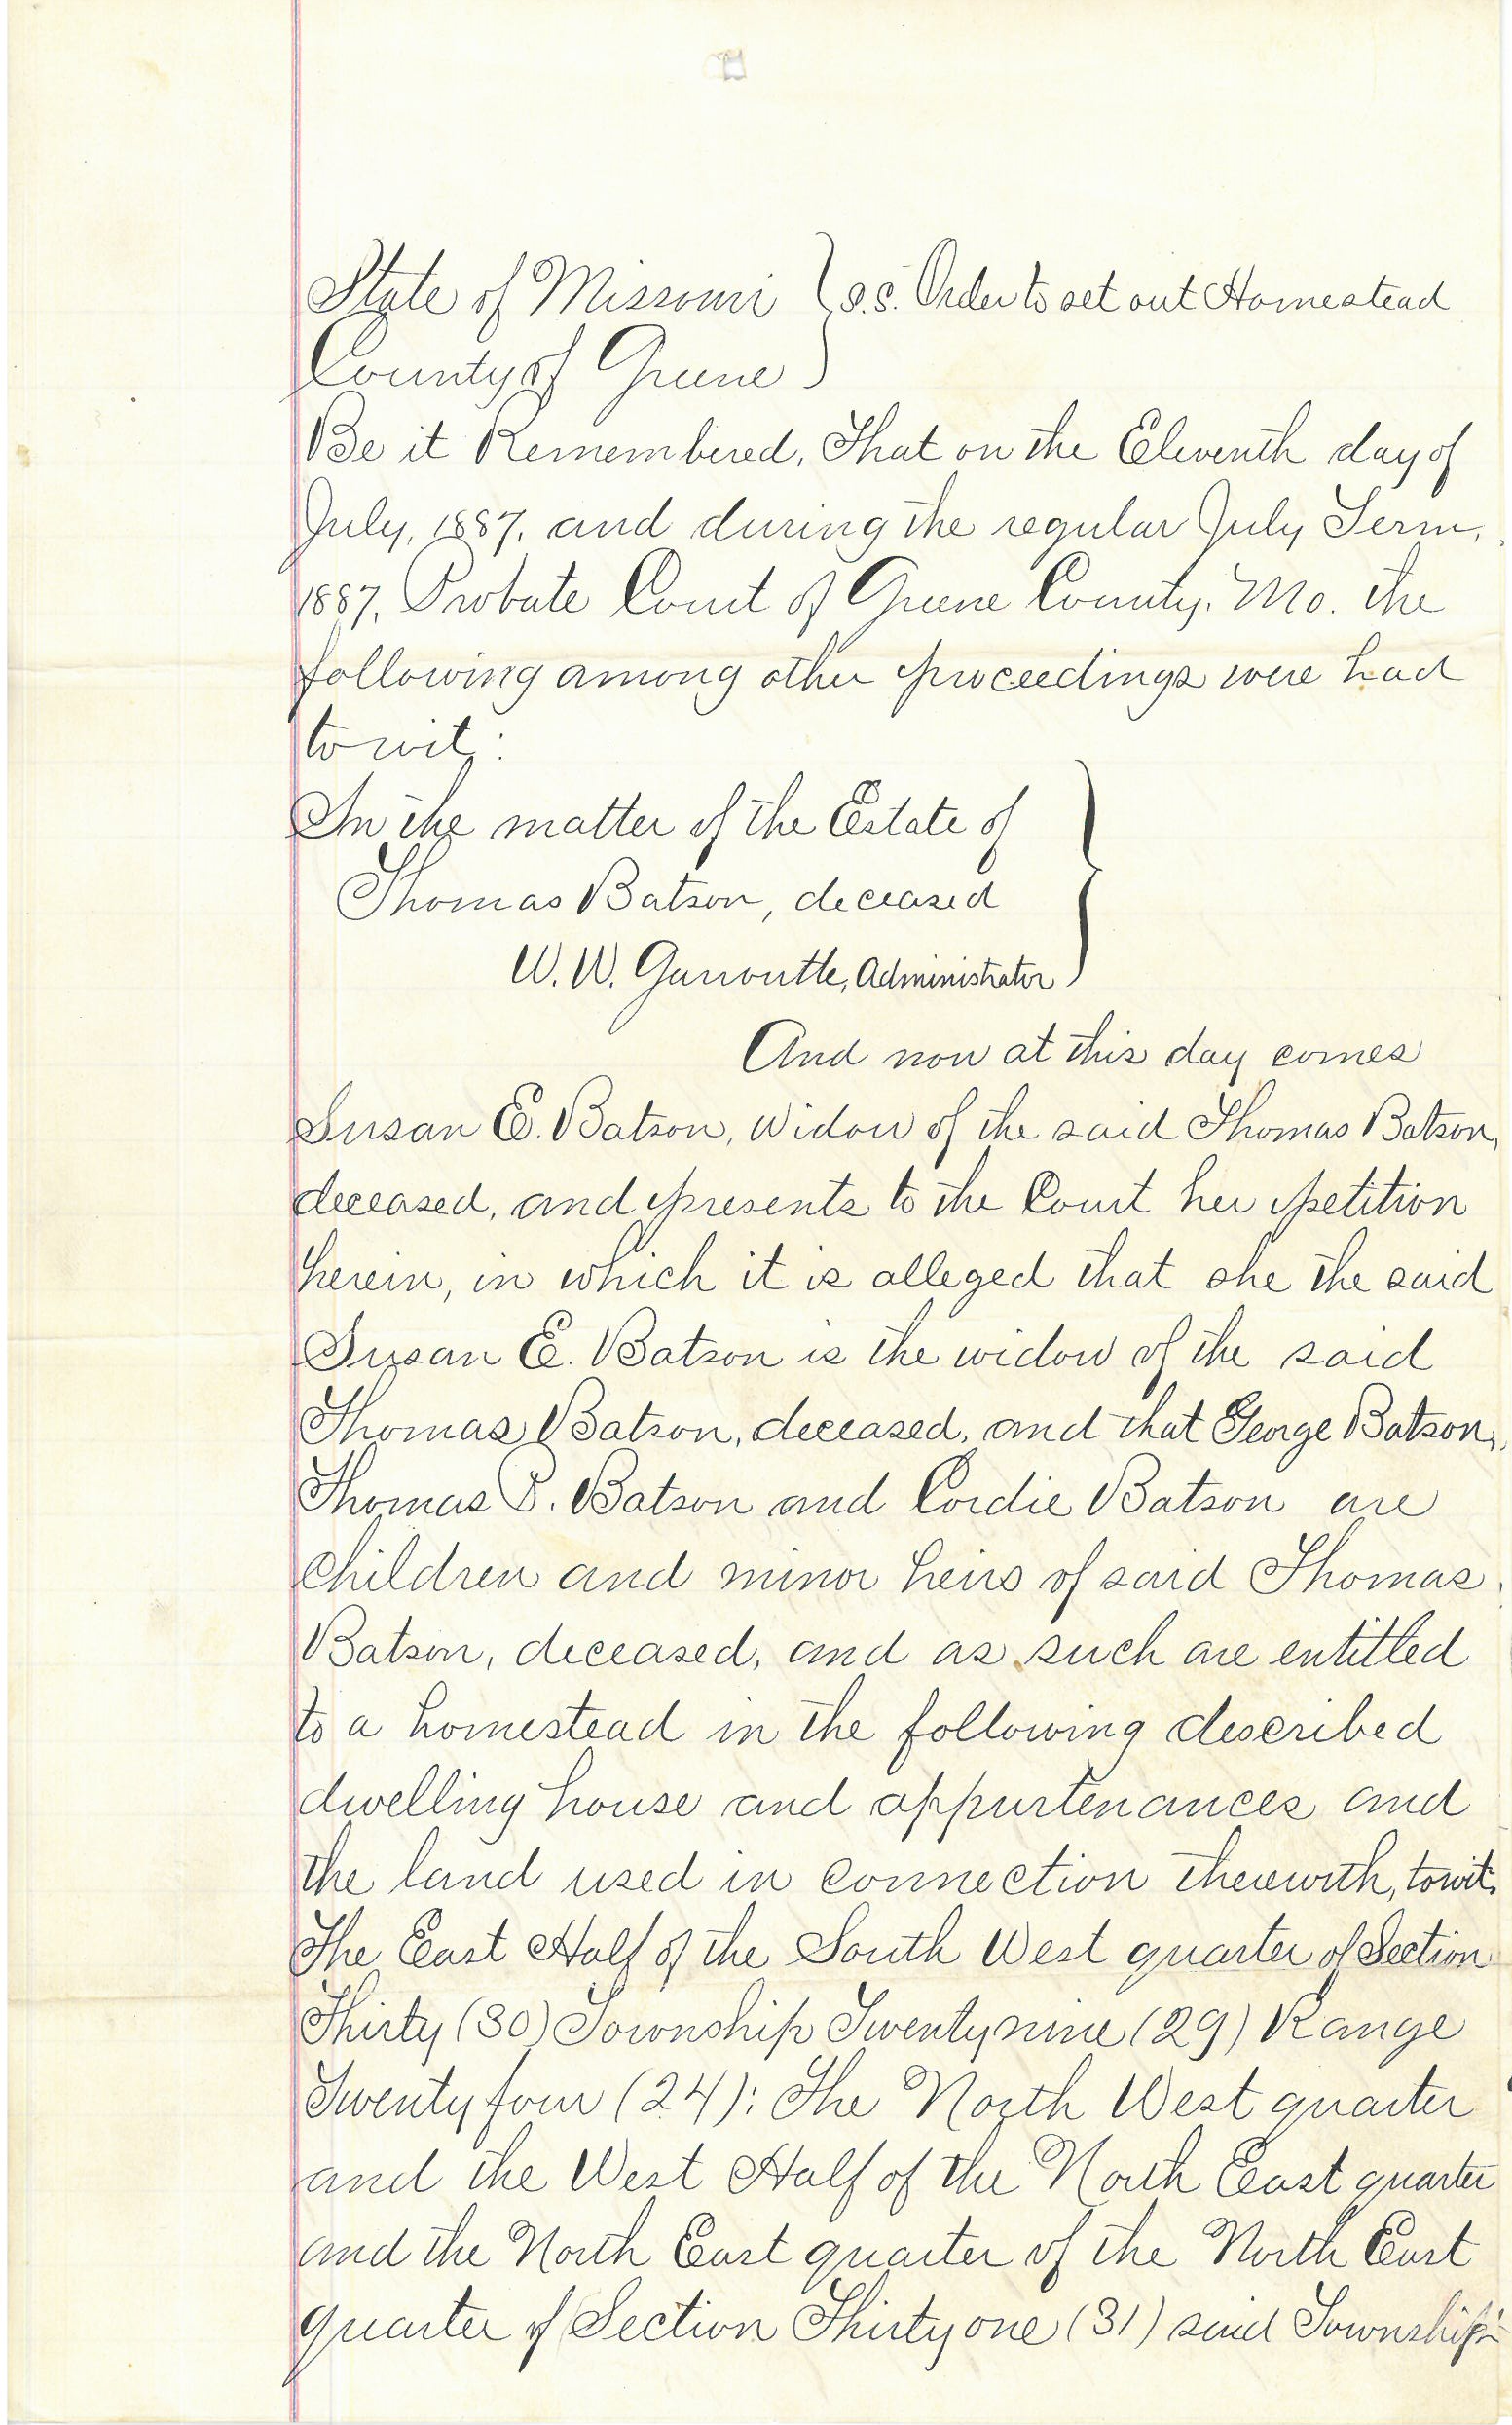 State of Missouri } s.s. Order to set out Homestead
County of Greene }
Be it Remembered, That on the Eleventh day of
July, 1887, and during the regular July Term,
1887, Probate Court of Greene County, Mo. the
following among other proceedings were had
to wit:
In the matter of the Estate of
Thomas Batson, deceased
W. W. Garroutte, Administrator
And now at this day comes
Susan E. Batson, Widow of the said Thomas Batson,
deceased, and presents to the Court her petition
herein, in which it is alleged that she the said
Susan E. Batson is the widow of the said
Thomas Batson, deceased, and that George Batson,
Thomas P. Batson and Cordie Batson are
children and minor heirs of said Thomas
Batson, deceased, and as such are entitled
to a homestead in the following described
dwelling house and appurtenances and
the land used in connection therewith, towit:
The East Half of the South West quarter of Section
Thirty (30) Township Twenty nine (29) Range
Twenty four (24); The North West quarter
and the West Half of the North East quarter
and the North East quarter of the North East
quarter of Section Thirty one (31) said Township